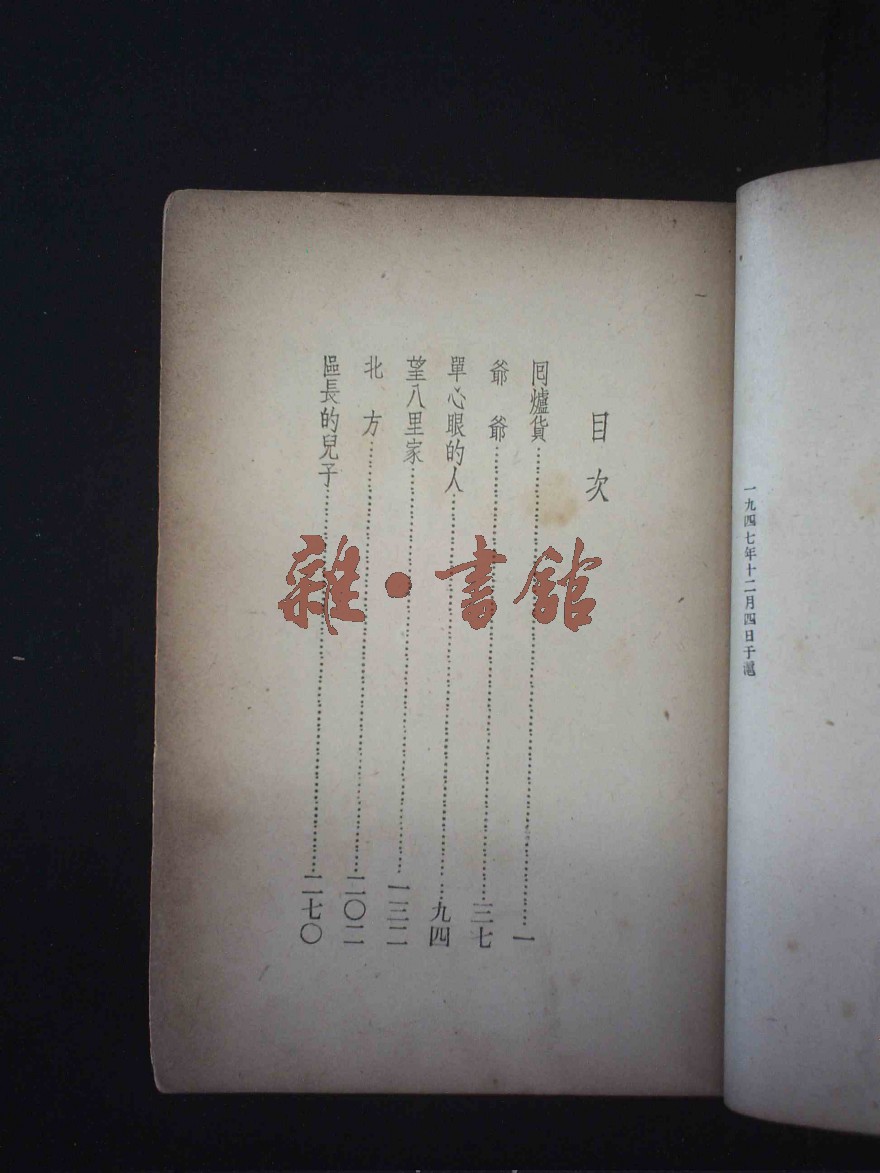 一九四七年十二月四日于滬
目次
囘爐貨……一
爺爺……三七
單心眼的人……九四
望八里家……一三二
北方……二〇二
區長的兒子……二七〇
雜·書館